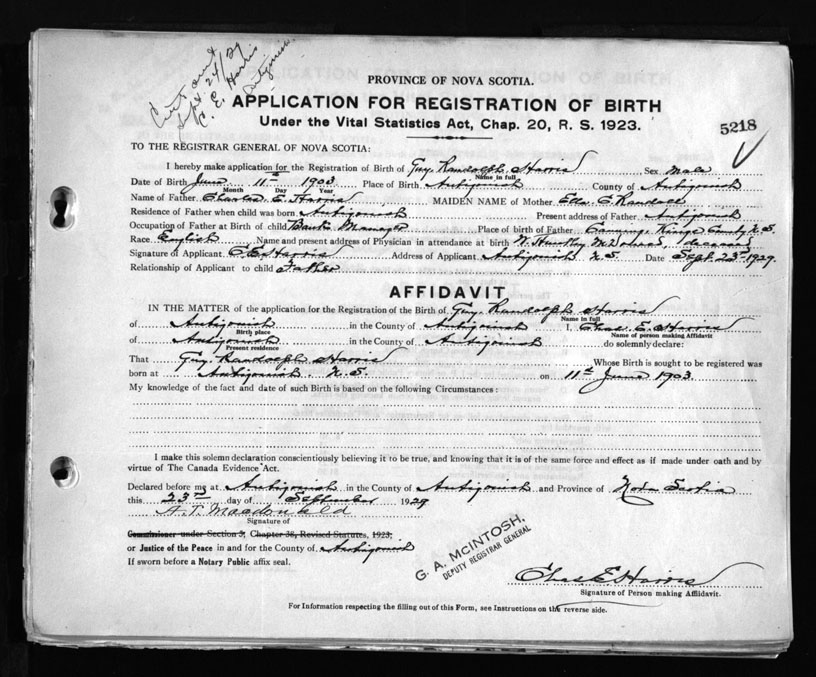 Sept. 24/29
C. E. Harris
Antigonish
PROVINCE OF NOVA SCOTIA.
APPLICATION FOR REGISTRATION OF BIRTH
Under the Vital Statistics Act, Chap. 20, R. S. 1923.
5218
TO THE REGISTRAR GENERAL OF NOVA SCOTIA:
I hereby make application for the Registration of Birth of Guy Randolph Harris Sex Male
Name in full
Date of Birth June 11th 1903 Place of Birth Antigonish County of Antigonish
Month Day Year
Name of Father Charles E. Harris MAIDEN NAME of Mother Eda C Randall
Residence of Father when child was born Antigonish Present address of Father Antigonish
Occupation of Father at Birth of child Bank Manager Place of birth of Father Canning, Kings County N.S.
Race English Name and present address of Physician in attendance at birth W. Huntley McDonald, (deceased)
Signature of Applicant C E Harris Address of Applicant Antigonish N.S. Date Sept. 23rd 1929.
Relationship of Applicant to child Father
AFFIDAVIT
IN THE MATTER of the application for the Registration of the Birth of Guy Randolph Harris
Name in full
of Antigonish in the County of Antigonish I, Chas. E. Harris
Birth place Name of person making Affidavit
of Antigonish in the County of Antigonish do solemnly declare:
Present residence
That Guy Randolph Harris Whose Birth is sought to be registered was
born at Antigonish N.S. on 11th June 1903.
My knowledge of the fact and date of such Birth is based on the following Circumstances:
I make this solemn declaration conscientiously believing it to be true, and knowing that it is of the same force and effect as if made under oath and by
virtue of The Canada Evidence Act.
Declared before me at Antigonish in the County of Antigonish and Province of Nova Scotia
this 23rd day of September 1929
A. T. Macdonald
Signature of
Commissioner under Section 3, Chapter 38, Revised Statutes, 1923;
or Justice of the Peace in and for the County of Antigonish
If sworn before a Notary Public affix seal.
G. A. McINTOSH,
DEPUTY REGISTRAR GENERAL
Chas E Harris
Signature of Person making Affidavit.
For Information respecting the filling out of this Form, see Instructions on the reverse side.